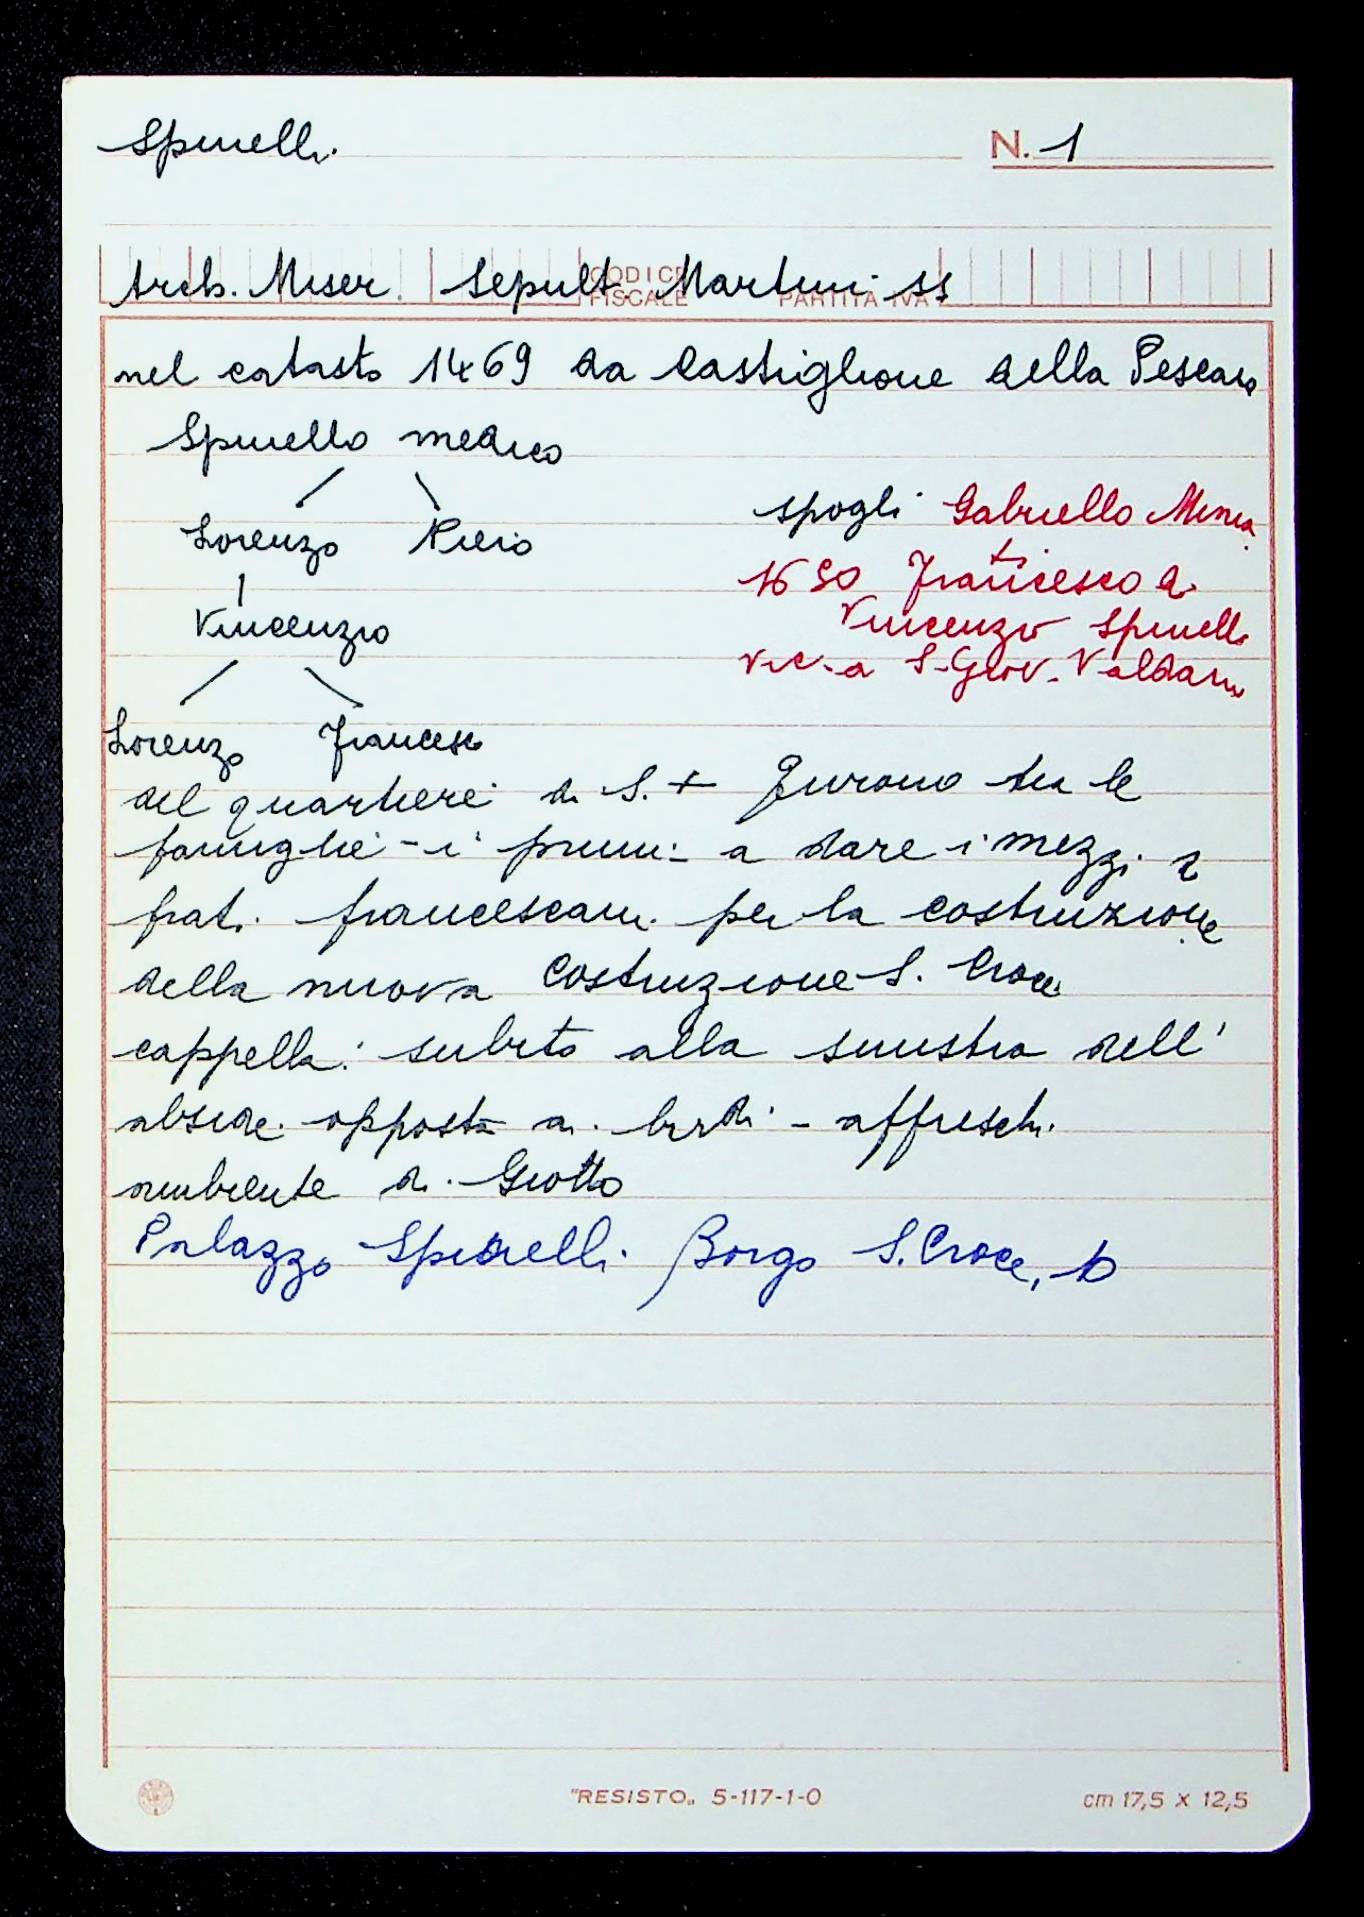 Spinelli
N. 1
CODICE FISCALE PARTITA IVA
Arch. Miser. Sepult. Martini 11
nel catasto 1469 da Castiglione della Pescaia
Spinello medico
Lorenzo Piero
Vincenzio
Lorenzo Francesco
spogli Gabriello
1650 Francesco di
Vincenzo Spinelli
vic. a S. Giov. Valdarno
del quartiere di S. + Furono tra le
famiglie - i primi a dare i mezzi a
frati francescani per la costruzione
della nuova costruzione S. Croce
cappella: subito alla sinistra dell'
abside opposta a. - affreschi
ambiente di Giotto
Palazzo Spinelli Borgo S. Croce, 10
"RESISTO" 5-117-1-0
cm 17,5 x 12,5